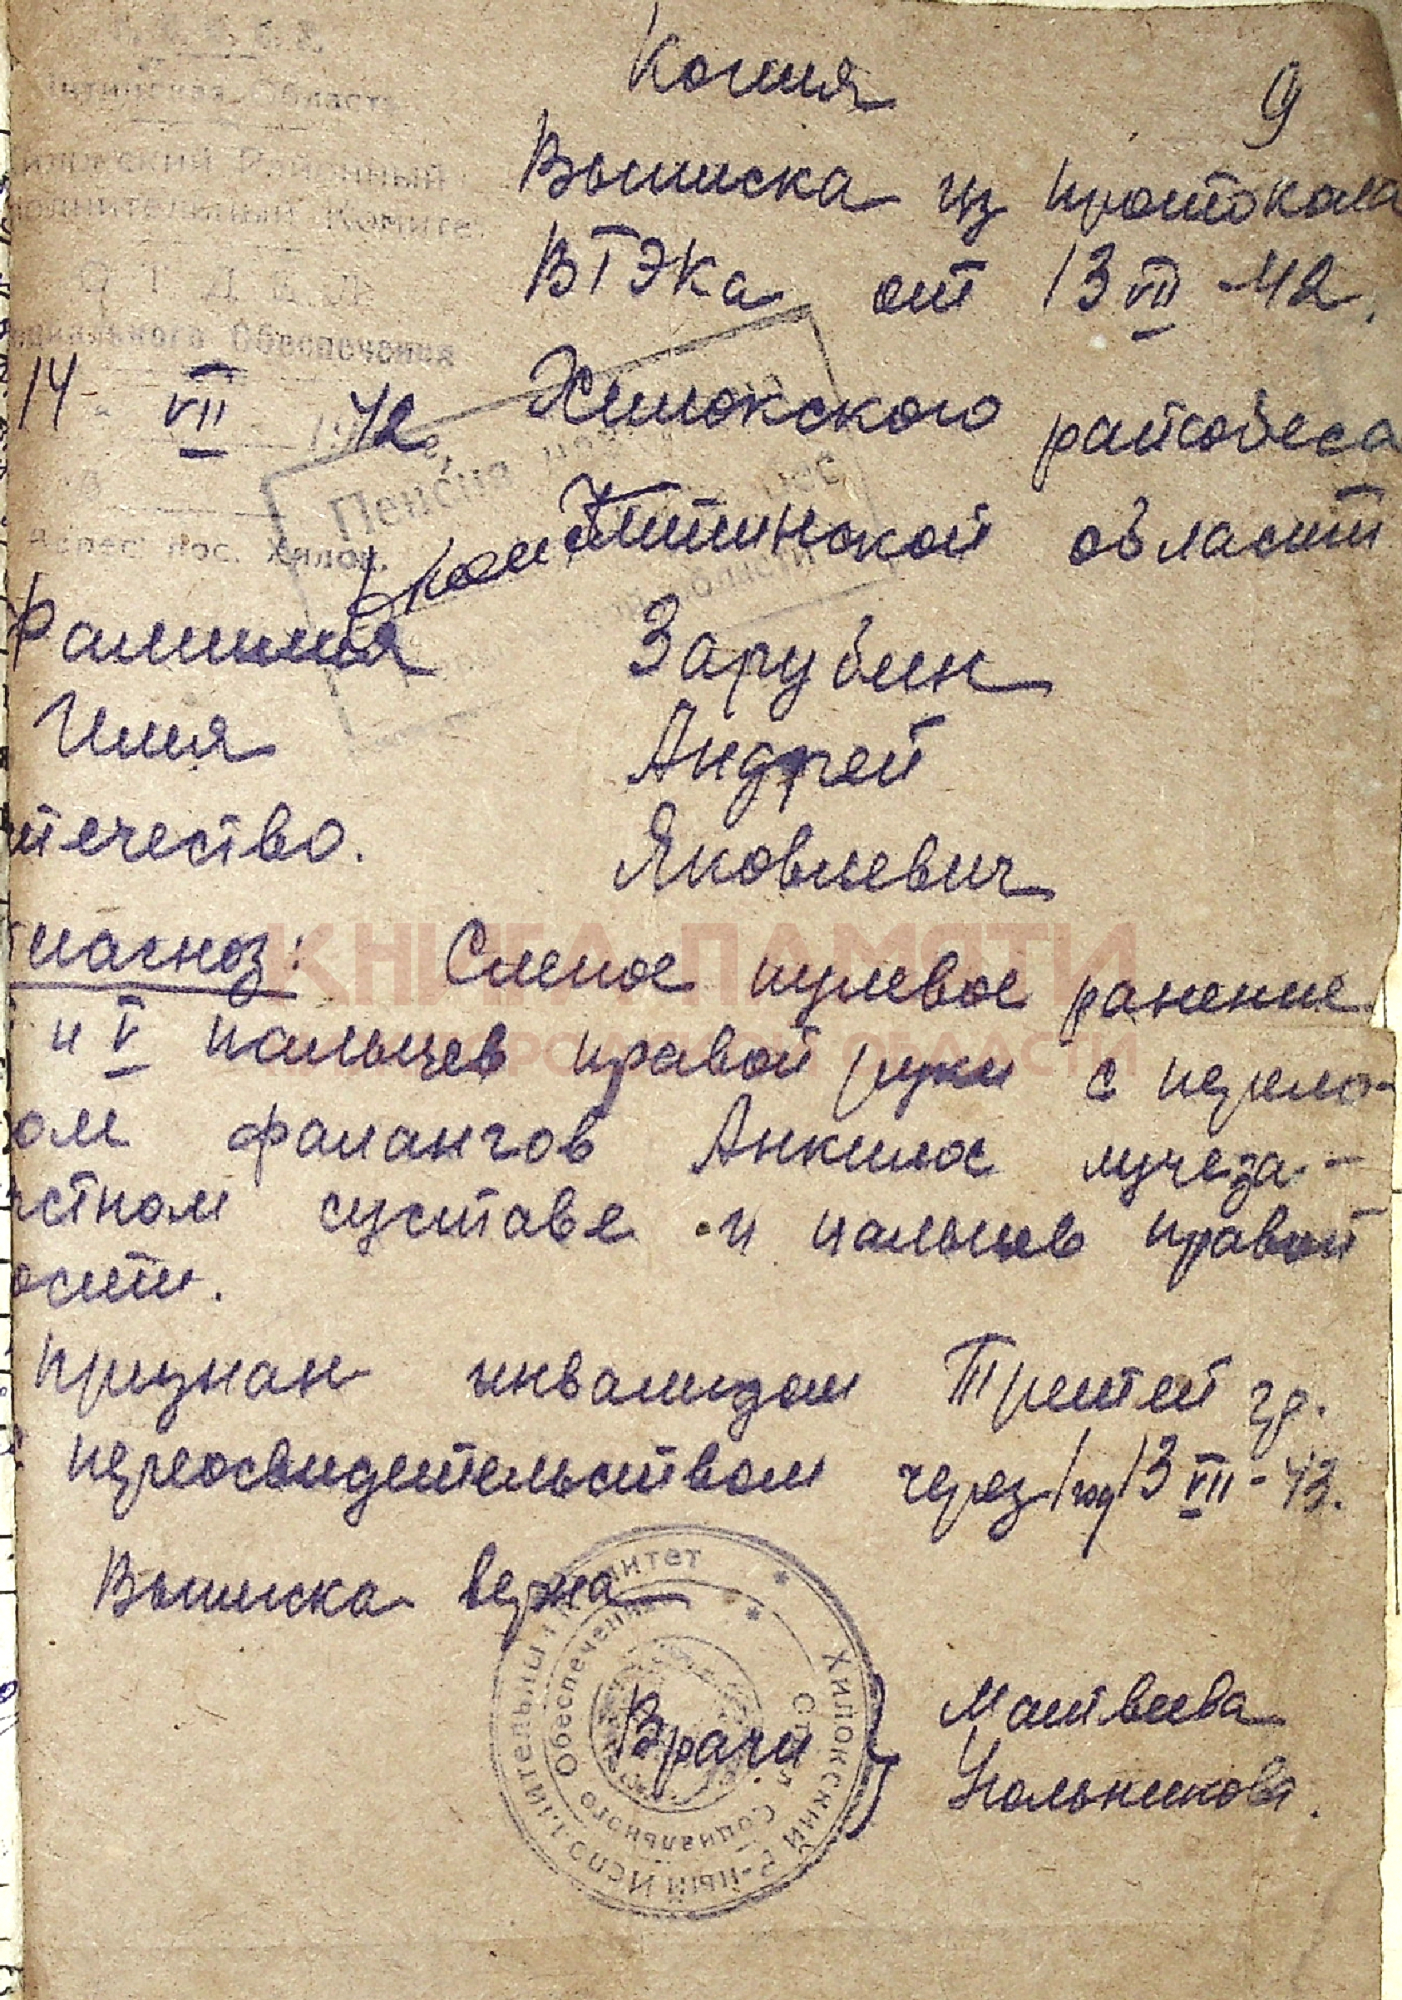 Копия
9
Читинская Область
Районный
Комитет
ОТДЕЛ
Обеспечения
14 VII 1942
Адрес: пос. Хилок.
Выписка из протокола
ВТЭКа от 13 VII-42.
Хилокского райсобеса
Читинской области
Пенсия
области
Фамилия Зарубин
Имя Андрей
тчество. Яковлевич
иагноз: Слепое пулевое ранение
и V пальцев правой руки с перело-
ом фалангов Анкилос лучеза-
ястном суставе и пальцев правой
ости.
признан инвалидом Третей гр.
переосвидетельством через 1 год 13 VII-43.
Выписка верна
Врачи } Матвеева
Угольникова.
Хилокский Р-ный Исполнительный Комитет
Отдел Социального Обеспечения
КНИГА ПАМЯТИ
ОБЛАСТИ